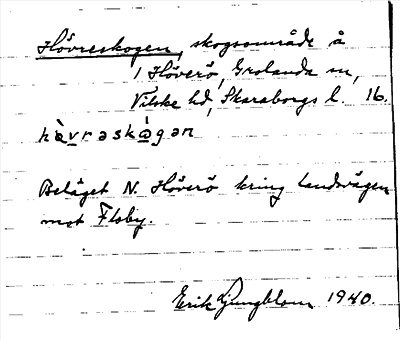 Hövreskogen, skogsområde å
1 Höverö, Grolanda sn,
Vilske hd, Skaraborgs l. 16.
hàvraskògan
Beläget N. Höverö kring landsvägen
mot Floby.
Erik Ljungblom 1940.